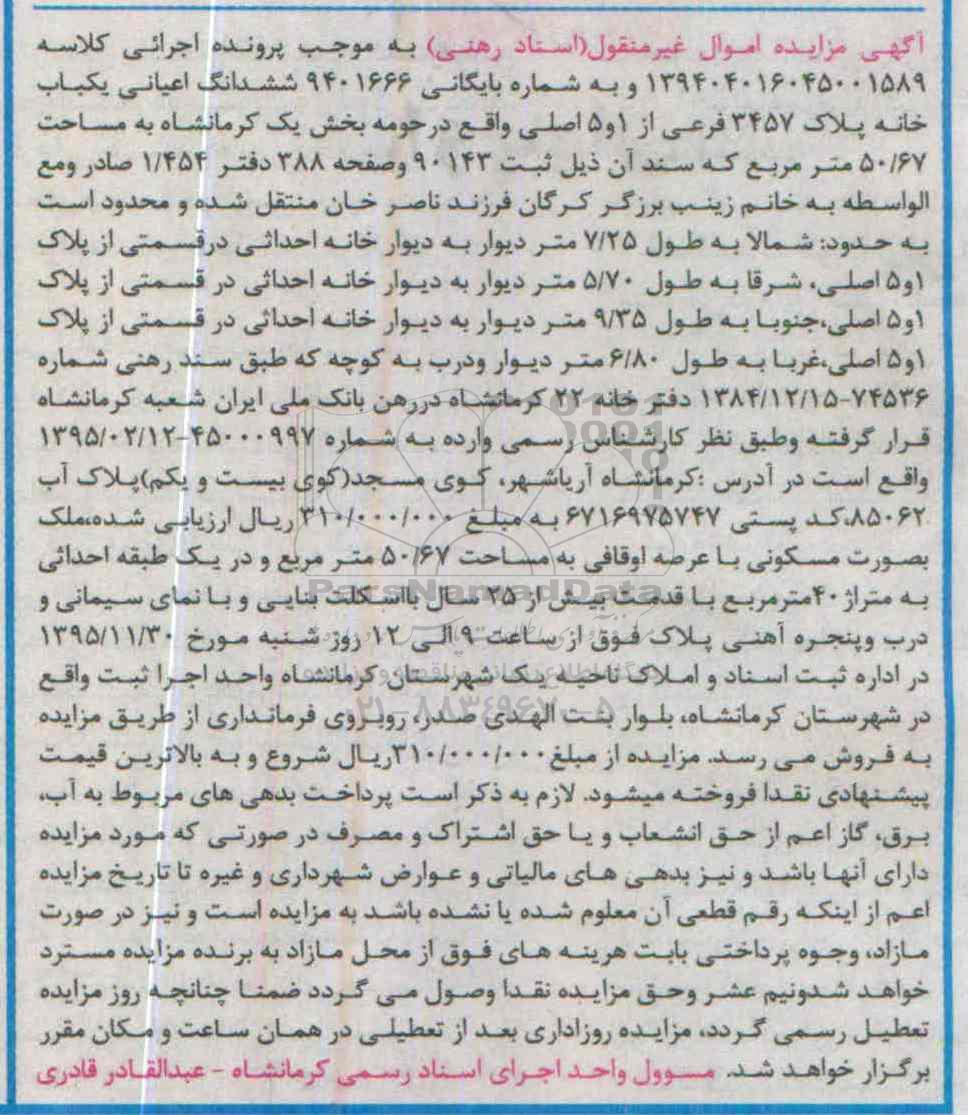 آگهی مزایده اموال غیرمنقول(اسناد رهنی) به موجب پرونده اجرائی کلاسه
۱۳۹۴۰۴۰۱۶۰۴۵۰۰۱۵۸۹ و به شماره بایگانی ۹۴۰۱۶۶۶ ششدانگ اعیانی یکباب
خانه پلاک ۳۴۵۷ فرعی از ۱و۵ اصلی واقع درحومه بخش یک کرمانشاه به مساحت
۵۰/۶۷ متر مربع که سند آن ذیل ثبت ۹۰۱۴۳ وصفحه ۳۸۸ دفتر ۱/۴۵۴ صادر ومع
الواسطه به خانم زینب برزگر کرگان فرزند ناصر خان منتقل شده و محدود است
به حدود: شمالا به طول ۷/۲۵ متر دیوار به دیوار خانه احداثی درقسمتی از پلاک
۱و۵ اصلی، شرقا به طول ۵/۷۰ متر دیوار به دیوار خانه احداثی در قسمتی از پلاک
۱و۵ اصلی،جنوبا به طول ۹/۳۵ متر دیوار به دیوار خانه احداثی در قسمتی از پلاک
۱و۵ اصلی،غربا به طول ۶/۸۰ متر دیوار ودرب به کوچه که طبق سند رهنی شماره
۷۴۵۳۶-۱۳۸۴/۱۲/۱۵ دفتر خانه ۲۲ کرمانشاه دررهن بانک ملی ایران شعبه کرمانشاه
قرار گرفته وطبق نظر کارشناس رسمی وارده به شماره ۴۵۰۰۰۹۹۷-۱۳۹۵/۰۲/۱۲
واقع است در آدرس :کرمانشاه آریاشهر، کوی مسجد(کوی بیست و یکم)پلاک آب
۸۵۰۶۲،کد پستی ۶۷۱۶۹۷۵۷۴۷ به مبلغ ۳۱۰/۰۰۰/۰۰۰ ریال ارزیابی شده،ملک
بصورت مسکونی با عرصه اوقافی به مساحت ۵۰/۶۷ متر مربع و در یک طبقه احداثی
به متراژ ۴۰مترمربع با قدمت بیش از ۲۵ سال بااسکلت بنایی و با نمای سیمانی و
درب وپنجره آهنی پلاک فوق از ساعت ۹ الی ۱۲ روز شنبه مورخ ۱۳۹۵/۱۱/۳۰
در اداره ثبت اسناد و املاک ناحیه یک شهرستان کرمانشاه واحد اجرا ثبت واقع
در شهرستان کرمانشاه، بلوار بنت الهدی صدر، روبروی فرمانداری از طریق مزایده
به فروش می رسد. مزایده از مبلغ ۳۱۰/۰۰۰/۰۰۰ریال شروع و به بالاترین قیمت
پیشنهادی نقدا فروخته میشود. لازم به ذکر است پرداخت بدهی های مربوط به آب،
برق، گاز اعم از حق انشعاب و یا حق اشتراک و مصرف در صورتی که مورد مزایده
دارای آنها باشد و نیز بدهی های مالیاتی و عوارض شهرداری و غیره تا تاریخ مزایده
اعم از اینکه رقم قطعی آن معلوم شده یا نشده باشد به مزایده است و نیز در صورت
مازاد، وجوه پرداختی بابت هرینه های فوق از محل مازاد به برنده مزایده مسترد
خواهد شدونیم عشر وحق مزایده نقدا وصول می گردد ضمنا چنانچه روز مزایده
تعطیل رسمی گردد، مزایده روزاداری بعد از تعطیلی در همان ساعت و مکان مقرر
برگزار خواهد شد. مسوول واحد اجرای اسناد رسمی کرمانشاه - عبدالقادر قادری
ParsNamadData
۰۲۱-۸۸۳۴۹۶۷۰-۵